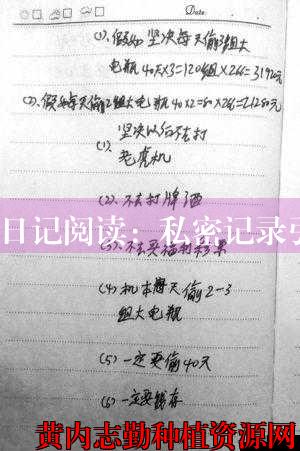 Date
(1). 假如 坚决每天偷3组大
电瓶 40天×3=120组×266=31920元
(2). 假如每天偷2组大电瓶 40×2=80×266=21280元
坚决以后不去打
(1).
老虎机
(2). 不去打牌 酒
日记阅读：私密记录
(3). 不去买福利彩票
(4) 机本 每天偷2-3
组大电瓶
(5) 一定要偷40天
(6) 一定要钱存
黄内志勤种植资源网